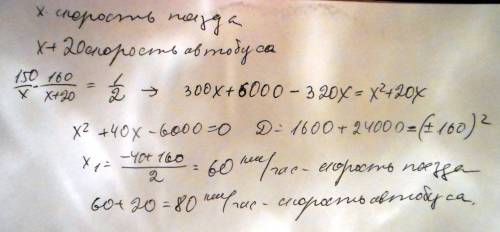 x скорость поезда
x + 20 скорость автобуса
150/x - 160/x+20 = 1/2 → 300x + 6000 - 320x = x² + 20x
x² + 40x - 6000 = 0 D = 1600 + 24000 = (± 160)²
x₁ = -40 + 160/2 = 60 км/час - скорость поезда
60 + 20 = 80 км/час - скорость автобуса.